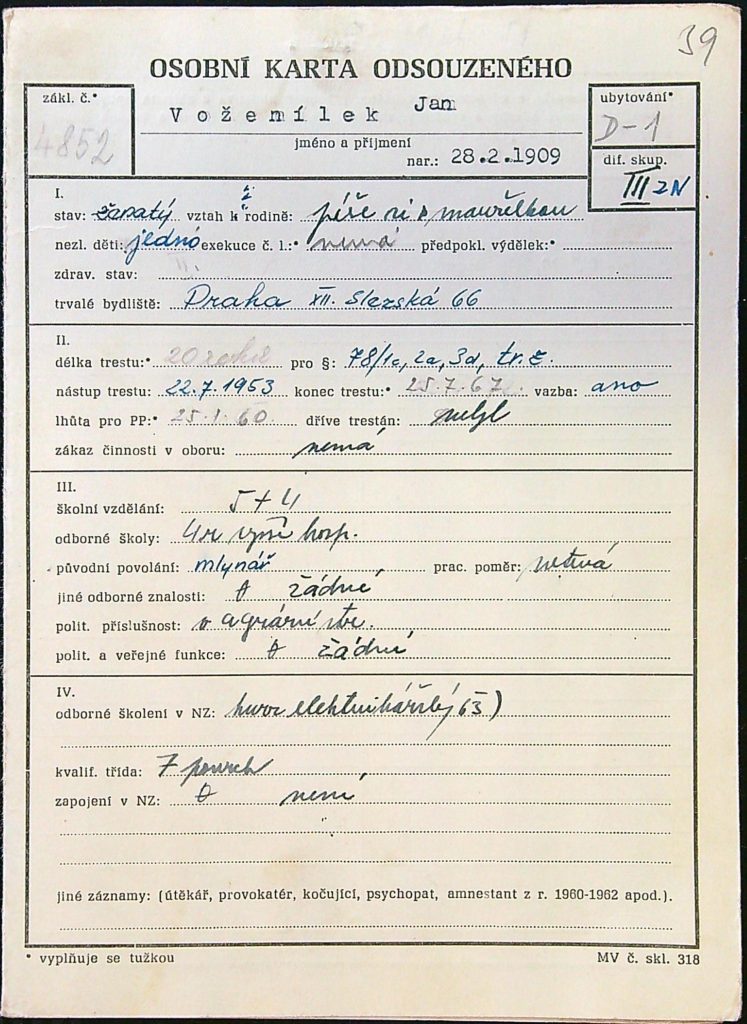 39
OSOBNÍ KARTA ODSOUZENÉHO
zákl. č.*
4852
Voženílek Jan
jméno a příjmení
nar.: 28.2.1909
ubytování*
D-1
dif. skup.
III ZN
I.
stav: ženatý vztah k rodině: píše si s manželkou
nezl. děti: jedno exekuce č. l.:* nemá předpokl. výdělek:*
zdrav. stav:
trvalé bydliště: Praha XII. Slezská 66
II.
délka trestu:* 20 roků pro §: 78/1c, 2a, 3d, tr. z.
nástup trestu: 22.7.1953 konec trestu:* 25.7.67. vazba: ano
lhůta pro PP:* 25.1.60. dříve trestán: nebyl
zákaz činnosti v oboru: nemá
III.
školní vzdělání: 5+4
odborné školy: 4r vyšší hosp.
původní povolání: mlynář prac. poměr:
jiné odborné znalosti: žádné
polit. příslušnost: v agrární str.
polit. a veřejné funkce: žádné
IV.
odborné školení v NZ: kurz elektrikářský 63)
kvalif. třída: 7
zapojení v NZ: není
jiné záznamy: (útěkář, provokatér, kočující, psychopat, amnestant z r. 1960-1962 apod.).
* vyplňuje se tužkou
MV č. skl. 318